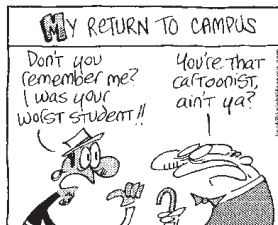 MY RETURN TO CAMPUS
Don't you
remember me?
I was your
WORST STUDENT!!
You're THAT
CARTOONIST,
ain't ya?